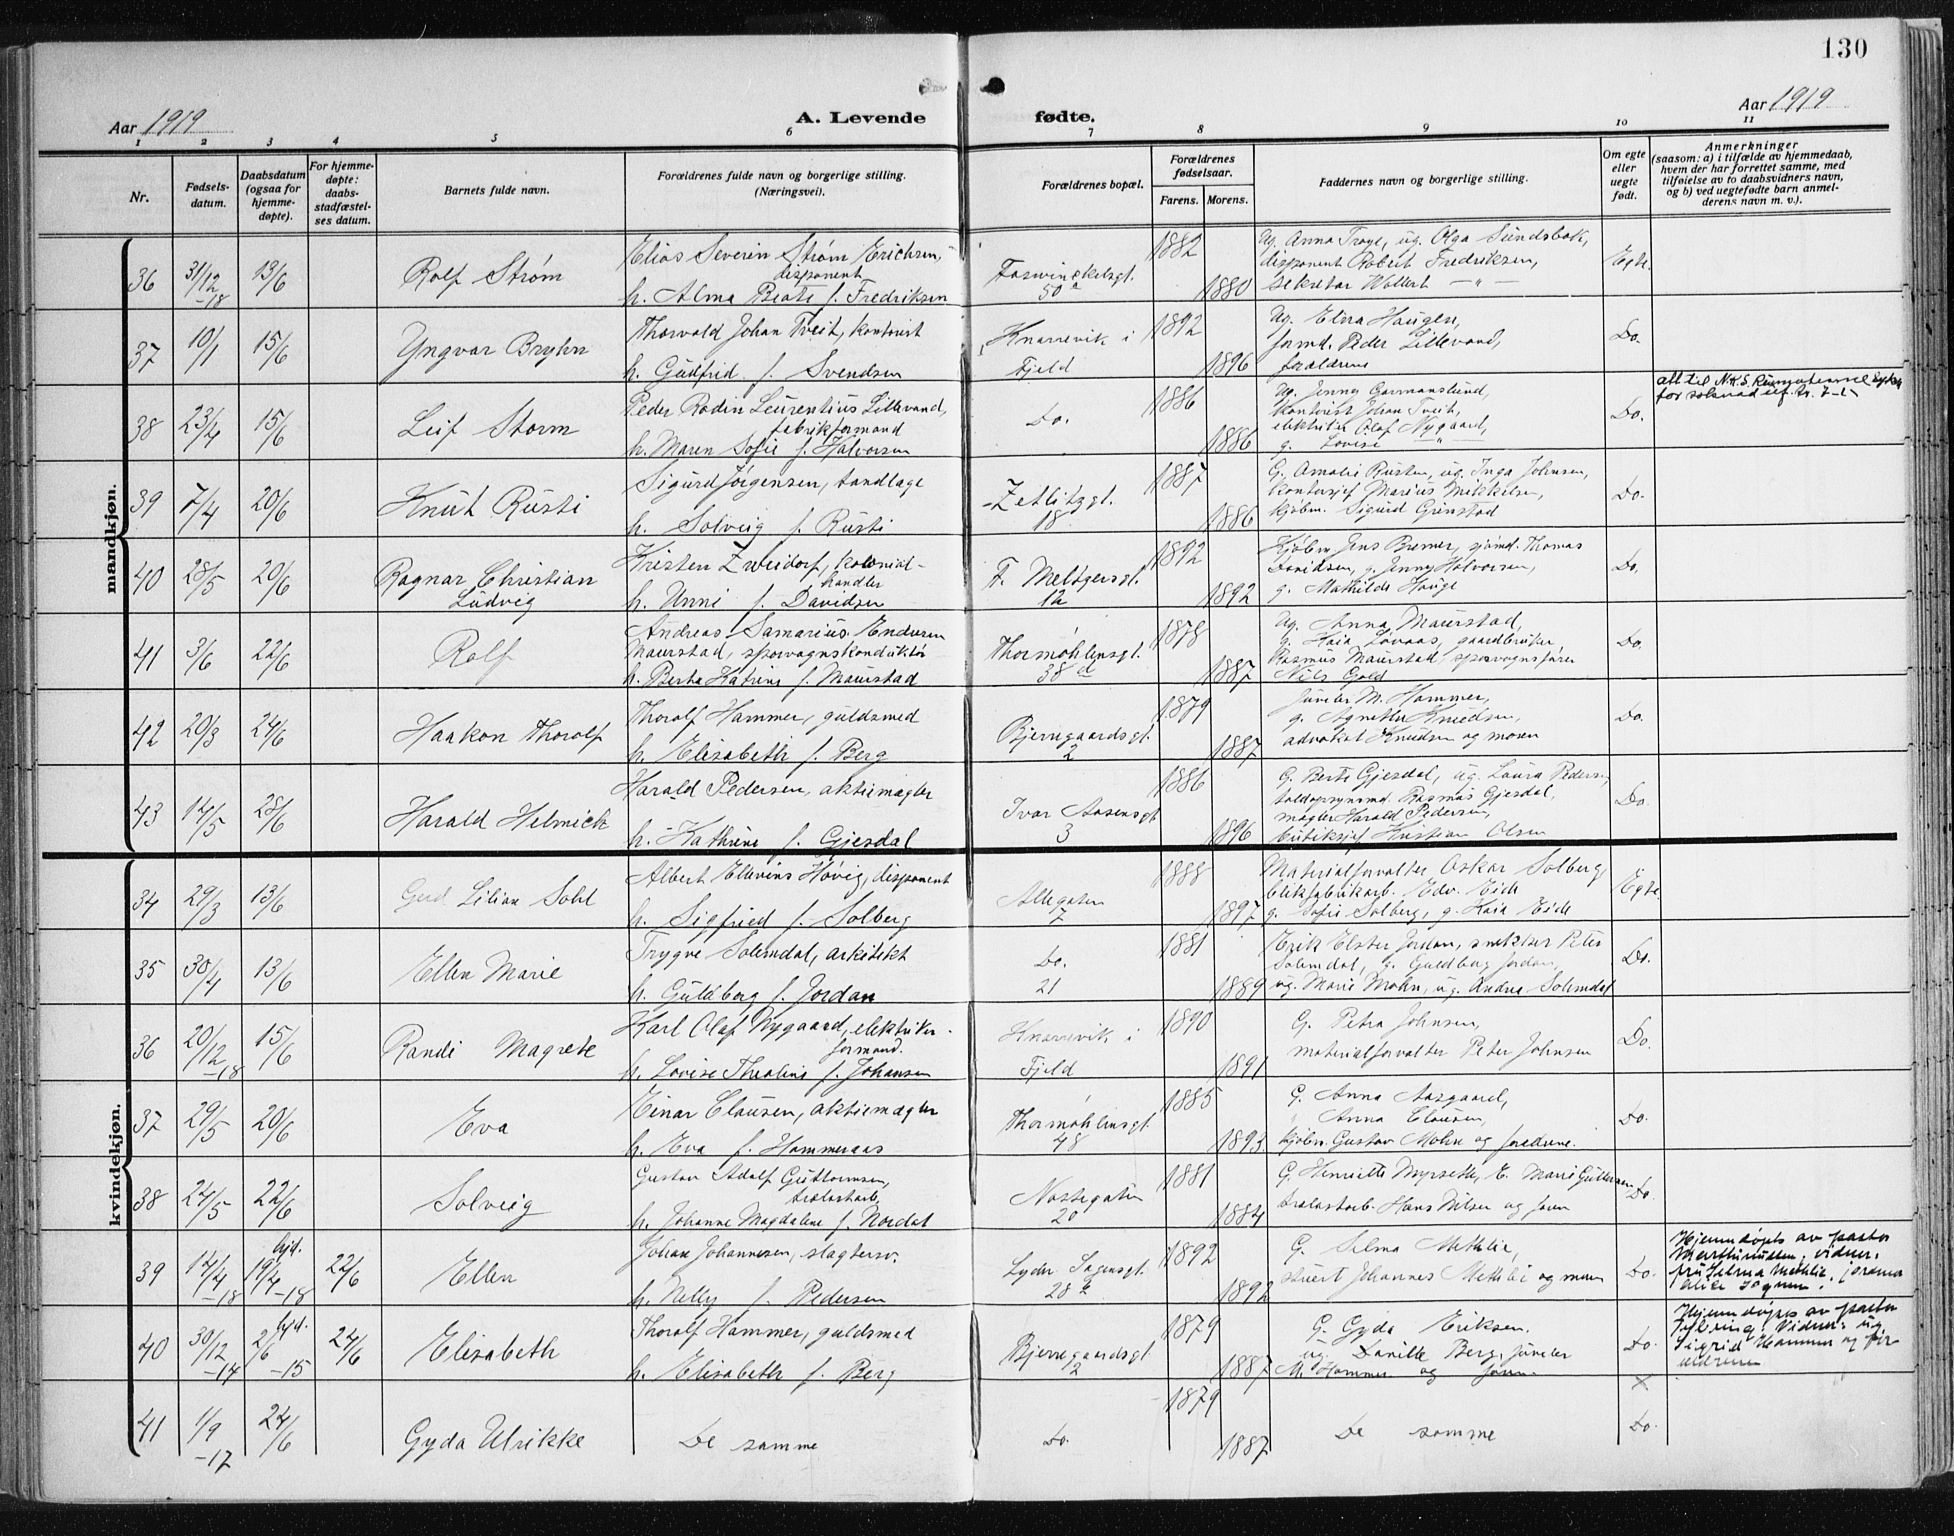 130
Aar 1919
A. Levende fødte.
Aar 1919
1 2 3 4 5 6 7 8 9 10 11
Nr.
Fødsels-
datum.
Daabsdatum
(ogsaa for
hjemme-
døpte).
For hjemme-
døpte:
daabs-
stadfæstel-
ses datum.
Barnets fulde navn.
Forældrenes fulde navn og borgerlige stilling.
(Næringsvei).
Forældrenes bopæl.
Forældrenes
fødselsaar.
Farens. Morens.
Faddernes navn og borgerlige stilling.
Om egte
eller
uegte
født.
Anmerkninger
(saasom: a) i tilfælde av hjemmedaab,
hvem der har forrettet samme, med
tilføielse av to daabsvidners navn,
og b) ved uegtefødte barn anmel-
derens navn m. v.).
mandkjøn.
36 31/12 -18 13/6 Rolf Strøm
Elias Severin Strøm Erichsen,
disponent
h. Alma Beate f. Fredriksen
50a
1882 1880
Ug. Anna Troye, ug. Olga Sundsbak,
disponent Robert Fredriksen,
sekretær Wollert -"-
Egte.
37 10/1 15/6 Yngvar Bryhn
Thorvald Johan Tveit, kontorist
h. Gudfrid f. Svendsen
Knarrevik i
Fjeld
1892 1896
Ug. Elna Haugen,
formd. Peder Lillevand,
forældrene
Do.
38 23/4 15/6 Leif Storm
Peder Rodin Laurentius Lillevand,
fabrikformand
h. Maren Sofie f. Halvorsen
Do.
1886 1886
Ug. Jenny Garmanslund,
kontorist Johan Tveit,
elektriker Olaf Nygaard,
g. Lovise -"-
Do.
39 7/4 20/6 Knut Rusti
Sigurd Jørgensen, tandlæge
h. Solveig f. Rusti
Zetlitzgt.
18
1887 1886
G. Amalie Rusten, ug. Inga Johnsen,
kontorsjef Marius Mikkelsen,
kjøbm. Sigurd Grimstad
Do.
40 28/5 20/6 Ragnar Christian
Ludvig
Kristen Zweidorf, kolonial-
handler
h. Unni f. Davidsen
F. Meltzersgt.
12
1892 1892
Kjøbm Jens Bremer, sjømd. Thomas
Davidsen, g. Jenny Halvorsen
g. Mathilde Hauge
Do.
41 3/6 22/6 Rolf
Andreas Samarius Endresen
Maurstad, sporvognskonduktør
h. Berta Katrine f. Maurstad
Thormøhlensgt.
38d
1878 1887
Ug. Anna Maurstad,
g. Kaia Løvaas, gaardbruker
Rasmus Maurstad, sporvognsfører
Nils Gold
Do.
42 20/3 24/6 Haakon Thorolf
Thorolf Hammer, guldsmed
h. Elisabeth f. Berg
Bjerregaardsgt.
2
1879 1887
Juveler M. Hammer,
g. Agnethe Knudsen,
advokat Knudsen og moren
Do.
43 14/5 28/6 Harald Helmick
Harald Pedersen, aktiemægler
h. Kathrine f. Gjesdal
Ivar Aasensgt
3
1886 1896
G. Berte Gjesdal, ug. Laura Pedersen,
toldopsynsmd. Rasmus Gjesdal,
mægler Harald Pedersen,
butiksjef Kristian Olsen
Do.
kvindekjøn.
34 29/3 13/6 Gerd Lilian Sohl
Albert Ellevius Høvig, disponent
h. Sigfried f. Solberg
Allegaten
7
1888 1897
Materialforvalter Oskar Solberg,
blikfabrikarb. Edv. Eide
g. Sofie Solberg, g. Kaia Eide
Egte.
35 30/4 13/6 Ellen Marie
Trygve Solemdal, arkitekt
h. Guldborg f. Jordan
Do.
21
1881 1889
Erik Elster Jordan, snekker Peter
Solemdal, g. Guldborg Jordan,
ug. Marie Mohn, ug. Andrea Solemdal
Do.
36 20/12 -18 15/6 Randi Magrete
Karl Olaf Nygaard, elektriker-
formand.
h. Lovise Theoline f. Johansen
Knarrevik i
Fjeld
1890 1891
G. Petra Johnsen,
materialforvalter Peter Johnsen
Do.
37 29/5 20/6 Eva
Einar Clausen, aktiemægler
h. Eva f. Hammeraas
Thormøhlensgt
48
1885 1893
G. Anna Aasgaard,
" Anna Clausen,
kjøbm. Gustav Mohn og forældrene.
Do.
38 24/5 22/6 Solveig
Gustav Adolf Guttormsen,
trælastarb.
h. Johanne Magdalene f. Nordal
Nøstegaten
20
1881 1884
G. Henriette Myrseth, E. Marie Guttormsen
trælastarb. Hans Nilsen og faren
Do.
39 14/4 -18 hjd. 19/4 -18 22/6 Ellen
Johan Johannesen, slagtersv.
h. Nelly f. Pedersen
Lyder Sagensgt.
28
1892 1892
G. Selma Methlie,
stuert Johannes Methlie og moren
Do.
Hjemmedøpt av pastor
Marthinussen, vidner:
fru Selma Methlie, jordmor
40 30/12 -14 hjd. 2/6 -15 24/6 Elisabeth
Thorolf Hammer, guldsmed
h. Elisabeth f. Berg
Bjerregaardsgt.
2
1879 1887
G. Gyda Eriksen.
ug. Danille Berg, juveler
M. Hammer og faren
Do.
Hjemmedøpt av pastor
Vidner: ug
Sigrid Hammer og for-
ældrene
×
41 1/9 -17 24/6 Gyda Ulrikke
De samme
Do.
1879 1887
De samme
Do.